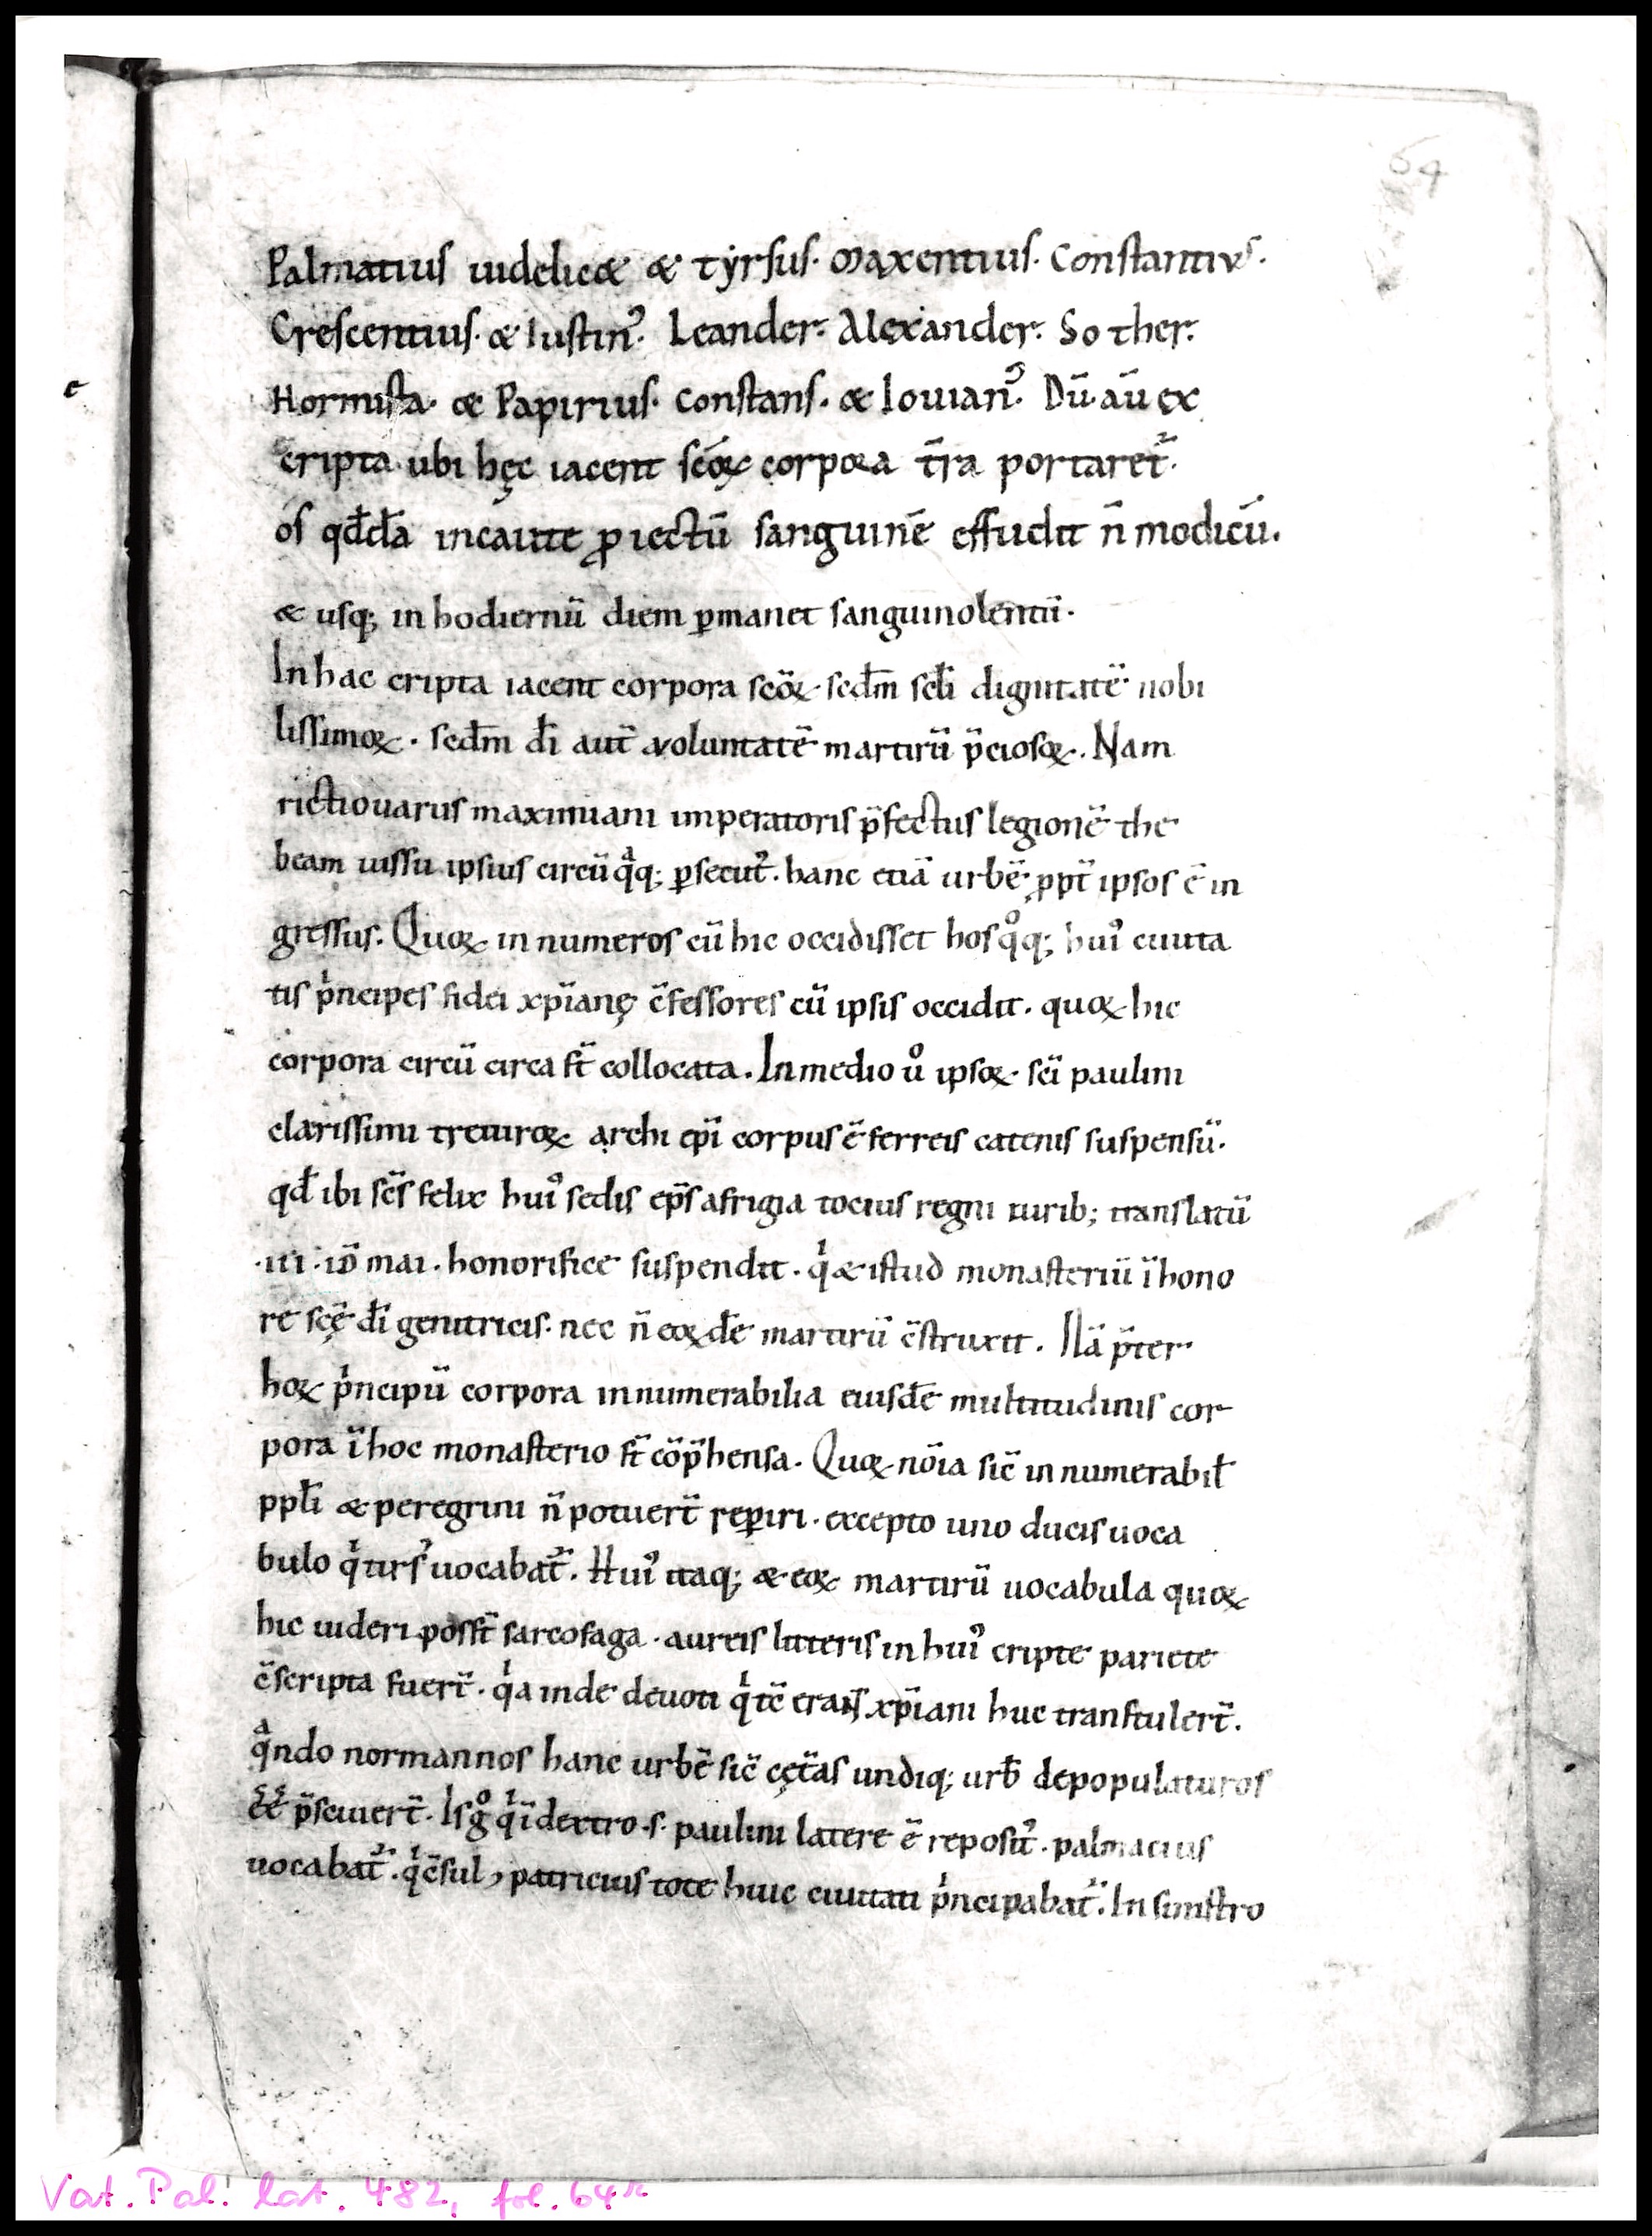 64
Palmatius uidelic& & tyrsus. Maxentius. Constantius.
Crescentius. & Iustin᾿. Leander. Alexander. Sother.
Hormista. & Papirius. Constans. & Iouian᾿. Dū. aū ex
cripta. ubi hęc iacent scōꝝ corpora t̄ra portaret̄.
os qđđa incaute ꝓiectū sanguinē effudit n̄ modicū.
& usq; in hodiernū diem ꝑmanet sanguinolentū.
In hac cripta iacent corpora scōꝝ. scđm scłi dignitatē nobi
lissimoꝝ. scđm đi aut̄ uoluntatē martirū p̄ciosoꝝ. Nam
rictiouarus maximiani imperatoris p̄fectus legionē the
beam iussu ipsius circūqͣq; ꝑsecut᾿. hanc etiā urbē ꝓpt̄ ipsos ē in
gressus. Quoꝝ innumeros cū hic occidisset hosqͦq; hui᾿ ciuita
tis pⁱncipes fidei xp̄ianę c̄fessores cū ipsis occidit. quoꝝ hic
corpora circū circa st̄ collocata. In medio uͦ ipsoꝝ. sc̄i paulini
clarissimi treuiroꝝ archi ep̄i corpus ē ferreis catenis suspensū.
qđ ibi sc̄s felix hui᾿ sedis ep̄s afrigia tocius regni uirib; translatū
.iii. iđ mai. honorifice suspendit. qⁱ & istud monasteriū ī hono
re scę̄ đi genitricis. nec n̄ eoꝝđe martirū c̄struxit. Nā p̄ter
hoꝝ pⁱncipū corpora innumerabilia eiusđe multitudinis cor
pora ī hoc monasterio st̄ cōp̄hensa. Quoꝝ nōia sic̄ innumerabił
ppłi & peregrini n̄ potuert̄ reꝑiri. excepto uno ducis uoca
bulo qⁱ tirs᾿ uocabat̄. Hui᾿ itaq; & eoꝝ martirū uocabula quoꝝ
hic uideri posst̄ sarcofaga. aureis litteris in hui᾿ cripte pariete
c̄scripta fuert̄. qⁱa inde deuoti qⁱ tc̄ erant xp̄iani huc transtulert̄.
qͣndo normannos hanc urbē sic̄ cęt̄as undiq; urƀ depopulaturos
ee p̄sciuert̄. Is gͦ qⁱ ī dextro .s. paulini latere ē reposit᾿. palmacius
uocabat̄. qⁱ c̄sul, patricius tote huic ciuitati pⁱncipabat̄. In sinistro
Vat. Pal. lat. 482, fol. 64r